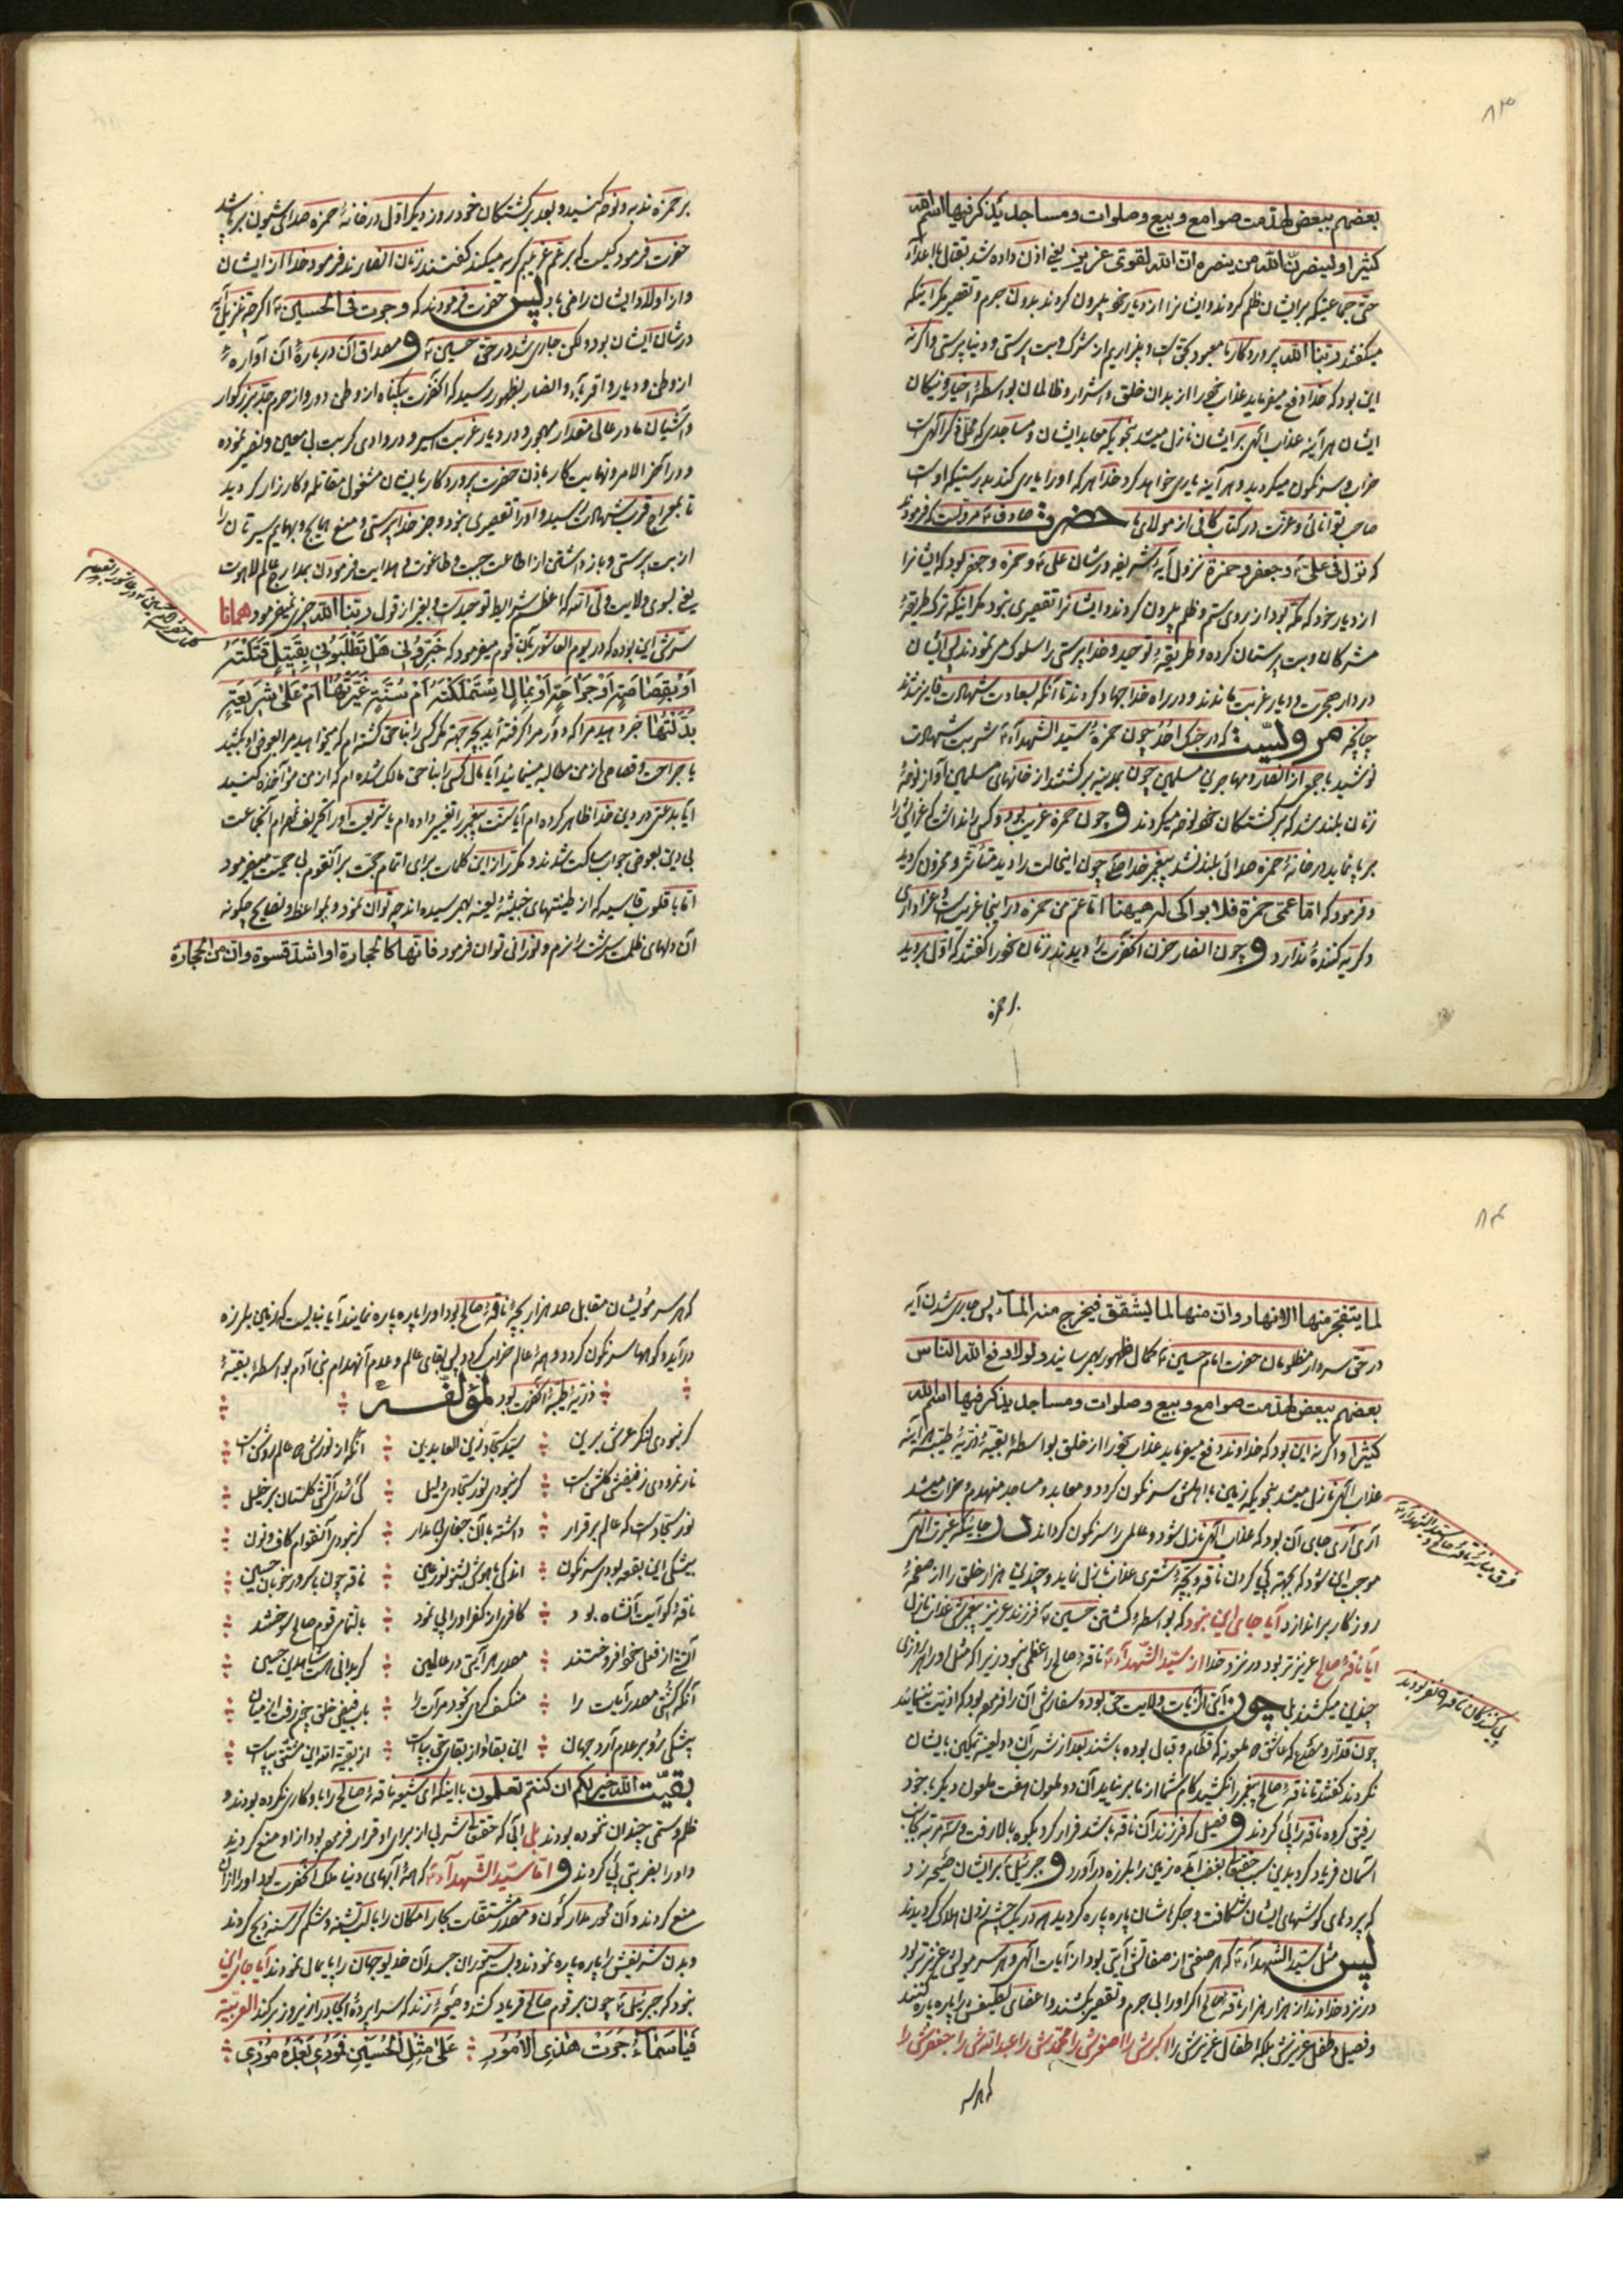 ۸۳
بعضهم ببعض لهدمت صوامع و بیع و صلوات و مساجد یذکر فیها اسم الله
کثیرا و لینصرن الله من ینصره ان الله لقوی عزیز یعنی اذن داده شد بقتال با اعداء
حتی جماعتیکه برایشان ظلم کردند و ایشانرا از دیار خود بیرون کردند بدون جرم و تقصیر مگر اینکه
میگفتند ربنا الله پروردگار ما معبود بحق است و بیزاریم از شرک و بت پرستی و دنیا پرستی و اگر نه
این بود که خدا دفع میفرماید عذاب خود را از بدان خلق و اشرار و ظالمان بواسطهٔ اخیار و نیکان
ایشان هر آینه عذاب الهی بر ایشان نازل میشد بنحویکه معابد ایشان و مساجدی که محل ذکر الهی است
خراب و سرنگون میگردید و هر آینه یاری خواهد کرد خدا هر که او را یاری کند بدرستیکه اوست
صاحب توانائی و عزت در کتاب کافی از مولای ما حضرت صادق ع مرویست که فرمود
که نزل فی علی ع و جعفر و حمزة نزول آیهٔ شریفه در شان علی ع و حمزه و جعفر بود که ایشانرا
از دیار خود که مکه بود از روی ستم و ظلم بیرون کردند و ایشانرا تقصیری نبود مگر اینکه ترک طریقهٔ
مشرکان و بت پرستان کرده و طریقهٔ توحید و خدا پرستی را سلوک می نمودند پس ایشان
در دار هجرت و دیار غربت ماندند و در راه خدا جهاد کردند تا آنکه بسعادت شهادت فایز شدند
چنانچه مرویست که در جنگ احد چون حمزهٔ سید الشهدآء ع شربت شهادت
نوشید با جمعی از انصار و مهاجرین مسلمین چون بمدینه برگشتند از خانهای مسلمین آواز نوحهٔ
زنان بلند شد که بر کشتگان خود نوحه میکردند و چون حمزه غریب بود و کسی را نداشت که عزایش را
بر پا نماید در خانهٔ حمزه صدائی بلند نشد پیغمبر خدا ص چون اینحالت را دید متأثر و محزون گردید
و فرمود که اما عمی حمزة فلا بواکی له هیهنا اما عم من حمزه در اینجا غریب است و عزاداری
و گریه کنندهٔ ندارد و چون انصار حزن آنحضرت را دیدند زنان خود را گفتند که اول بروید
بر حمزه
بر حمزه ندبه و نوحه کنید و بعد بر کشتگان خود روز دیگر اول در خانهٔ حمزه صدای شیون بر پا شد
حضرت فرمود کیست که بر عم غریبم گریه میکند گفتند زنان انصارند فرمود خدا از ایشان
و از اولاد ایشان راضی باد پس حضرت فرمودند که و جرت فی الحسین ع اگر چه نزول آیه
در شان ایشان بود ولکن جاری شد در حق حسین ع و مصداق آن دربارهٔ آن آوارهٔ
از وطن و دیار و اقربآء و انصار بظهور رسید که آنحضرت بیگناه از وطن دور و از حرم جد بزرگوار
و آشیان مادر عالی مقدار مهجور و در دیار غربت اسیر و در وادی کربت بی معین و نصیر نموده
و در آخر الامر و نهایت کار باذن حضرت پروردگار با ایشان مشغول مقاتله و کارزار گردید
تا بمعراج قرب شهادت رسید و او را تقصیری نبود و جز خدا پرستی و منع همج و بهایم سیرتان را
از بت پرستی و باز داشتن از اطاعت جبت و طاغوت و هدایت فرمودن بمدارج عالم لاهوت
یعنی بسوی ولایت ولی الله که اعظم شرایط توحید است و بغیر از قول ربنا الله چیزی نمیفرمود همانا
سرش این بوده که در یوم العاشور بآن قوم میفرمود که خبرونی هل تطلبونی بقتیل قتلته
او بقصاص من جراحة او بمال استملکته ام سنة غیرتها ام علی شریعة
بدلتها خبر دهید مرا که دور مرا گرفته اید بچه جهة مگر کسی را بناحق کشته ام که میخواهید مرا بعوض او بکشید
یا جراحت و قصاص از من مطالبه مینمائید آیا مال کسی را بناحق مالک شده ام که از من مؤاخذه کنید
آیا بدعتی در دین خدا ظاهر کرده ام آیا سنت پیغمبر را تغییر داده ام یا شریعت او را تحریف نموده ام آنجماعت
بی دین بعوض جواب ساکت شدند و مکرر از این کلمات برای اتمام حجت بر آنقوم بی حمیت میفرمود
اما با قلوب قاسیه که از طینتهای خبیثهٔ لعینه بهم رسیده اند چه توان نمود و بمواعظ و نصایح چگونه
آن دلهای ظلمت سرشت را نرم و نورانی توان فرمود فانها کالحجارة او اشد قسوة و ان من الحجارة
۸۴
لما یتفجر منها الانهار و ان منها لما یشقق فیخرج منه المآء پس جاری شدن آیه
در حق سردار مظلومان حضرت امام حسین ع بکمال ظهور بهم رسانید و لولا دفع الله الناس
بعضهم ببعض لهدمت صوامع و بیع و صلوات و مساجد یذکر فیها اسم الله
کثیرا و اگر نه این بود که خداوند دفع میفرماید عذاب خود را از خلق بواسطهٔ بقیهٔ ذریهٔ طیبه هر آینه
عذاب الهی نازل میشد بنحویکه زمین با اهلش سرنگون گردد و معابد و مساجد منهدم و خراب میشد
آری آری جای آن بود که عذاب الهی نازل شود و عالمی را سرنگون گرداند در جائیکه غیرت الهی
موجب این شود که بجهة پی کردن ناقه و بچهٔ شتری عذاب نازل نماید و چندین هزار خلق را از صفحهٔ
روزگار براندازد آیا جای این نبود که بواسطهٔ کشتن حسین ع فرزند عزیز پیغمبرش عذاب نازل
آیا ناقهٔ صالح عزیزتر بود در نزد خدا از سید الشهدآء ع ناقهٔ صالح را عظمی نبود زیرا که مثل او را هر روزی
چندین میکشند بلی چون آیتی از آیات ولایت حق بود و سفارش آن را فرموده بود که اذیت ننمایند
چون قدار و مصدع که عاشق دو ملعونه که قطام و قبال بوده باشند بعد از شرب آن دو لعینه تمکین بایشان
نکردند گفتند تا ناقهٔ صالح پیغمبر را نکشید کام شما از ما بر نیاید آن دو ملعون هفت ملعون دیگر با خود
رفیق کرده ناقه را پی کردند و فصیل که فرزند آن ناقه باشد فرار کرد بکوه بالا رفت و سه مرتبه بجانب
آسمان فریاد کرد بدین سبب حقتعالی بغضب آمده زمین را بلرزه در آورد و جبرئیل ع بر ایشان صیحه زد
که پردهای گوشهای ایشان شکافت و جگرهاشان پاره پاره گردید و در یک چشم زدن هلاک گردیدند
پس مثل سید الشهدآء ع که هر صفتی از صفاتش آیتی بود از آیات الهی و هر سر موئی عزیزتر بود
در نزد خداوند از هزار هزار ناقهٔ صالح اگر او را بی جرم و تقصیر بکشند و اعضای لطیفش را پاره پاره کنند
و فصیل و طفل عزیزش بلکه اطفال عزیزش را اکبرش را اصغرش را محمدش را عبداللهش را جعفرش را
که هر سر
فرق میانهٔ ناقهٔ صالح و سید الشهدآء ع
پی کنندگان ناقه ۹ نفر بودند
که هر سر موی ایشان مقابل صد هزار بچهٔ ناقهٔ صالح بود او را پاره پاره نمایند آیا نبایست که زمین بلرزه
در آید و کوهها سرنگون گردد و همهٔ عالم خراب گردد پس بقای عالم و عدم انهدام بنی آدم بواسطهٔ بقیهٔ
ذریهٔ طیبهٔ آنحضرت بود لمؤلفه
گر نبودی لنگر عرش برین سید سجاد زین العابدین آنکه از نورش دو عالم روشن است
نار نمرودی ز فیضش گلشن است گر نبودی نور سجادی دلیل کی شدی آتش گلستان بر خلیل
نور سجاد است که عالم برقرار داشته با آن جفای بی مدار گر نبودی آنقوام کاف و نون
بیشکی این بقعه بودی سرنگون اندکی با هوش بشنو نور عین ناقه چون با سرور خوبان حسین
ناقهٔ کو آیت آنشاه بود کافری از کفر او را پی نمود
آتشی از فعل خود افروختند مصدر هر آیتی در عالمین گر بدانی هست شاه دین حسین
آنکه گشتی مصدر آیات را منکسف کردی خود مرآت را باب فیض خلق چون رفت از میان
بیشکی رو بر عدم آرد جهان این بقا و از بقای حق بپاست از بقیة الله این مشتق بپاست
بقیت الله خیر لکم ان کنتم تعلمون با اینکه ای شیعه ناقهٔ صالح را با او کاری نکرده بودند و
ظلم و ستمی چندان ننموده بودند بلی آبی که حقتعالی شربی از برای او قرار فرموده بود از او منع کردند
و او را بضربتی پی کردند و اما سید الشهدآء ع که همهٔ آبهای دنیا ملک آنحضرت بود او را از آن
منع کردند و آن محور مدار کون و مصدر مشتقات بحار امکان را با لب تشنه و شکم گرسنه ذبح کردند
و بدن شریفش را پاره پاره نمودند و بسم ستوران جسد آن خدیو جهان را پایمال نمودند آیا جای این
نبود که جبرئیل ع چون بر قوم صالح فریاد کشد و صیحهٔ زند که سراپردهٔ ایجاد را زیر و زبر کند العربیة
فیا سمآء جرت هذی الامور علی مثل الحسین فموری بعده موری